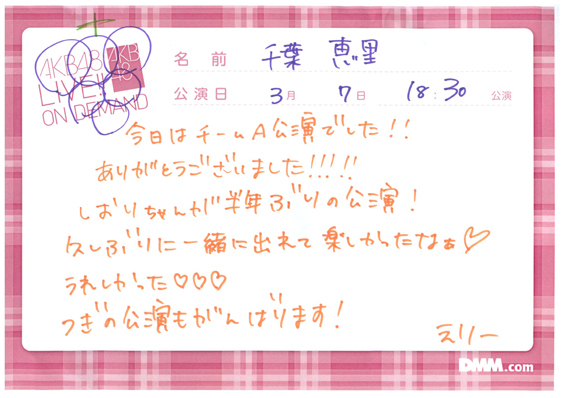 AKB48 AKB
48
LIVE!!
ON DEMAND
名前 千葉 恵里
公演日 3月 7日 18:30 公演
今日はチームA公演でした!!
ありがとうございました!!!!!
しおりちゃんが半年ぶりの公演!
久しぶりに一緒に出れて楽しかったなぁ♡
うれしかった♡♡♡
つぎの公演もがんばります!
えりー
DMM.com